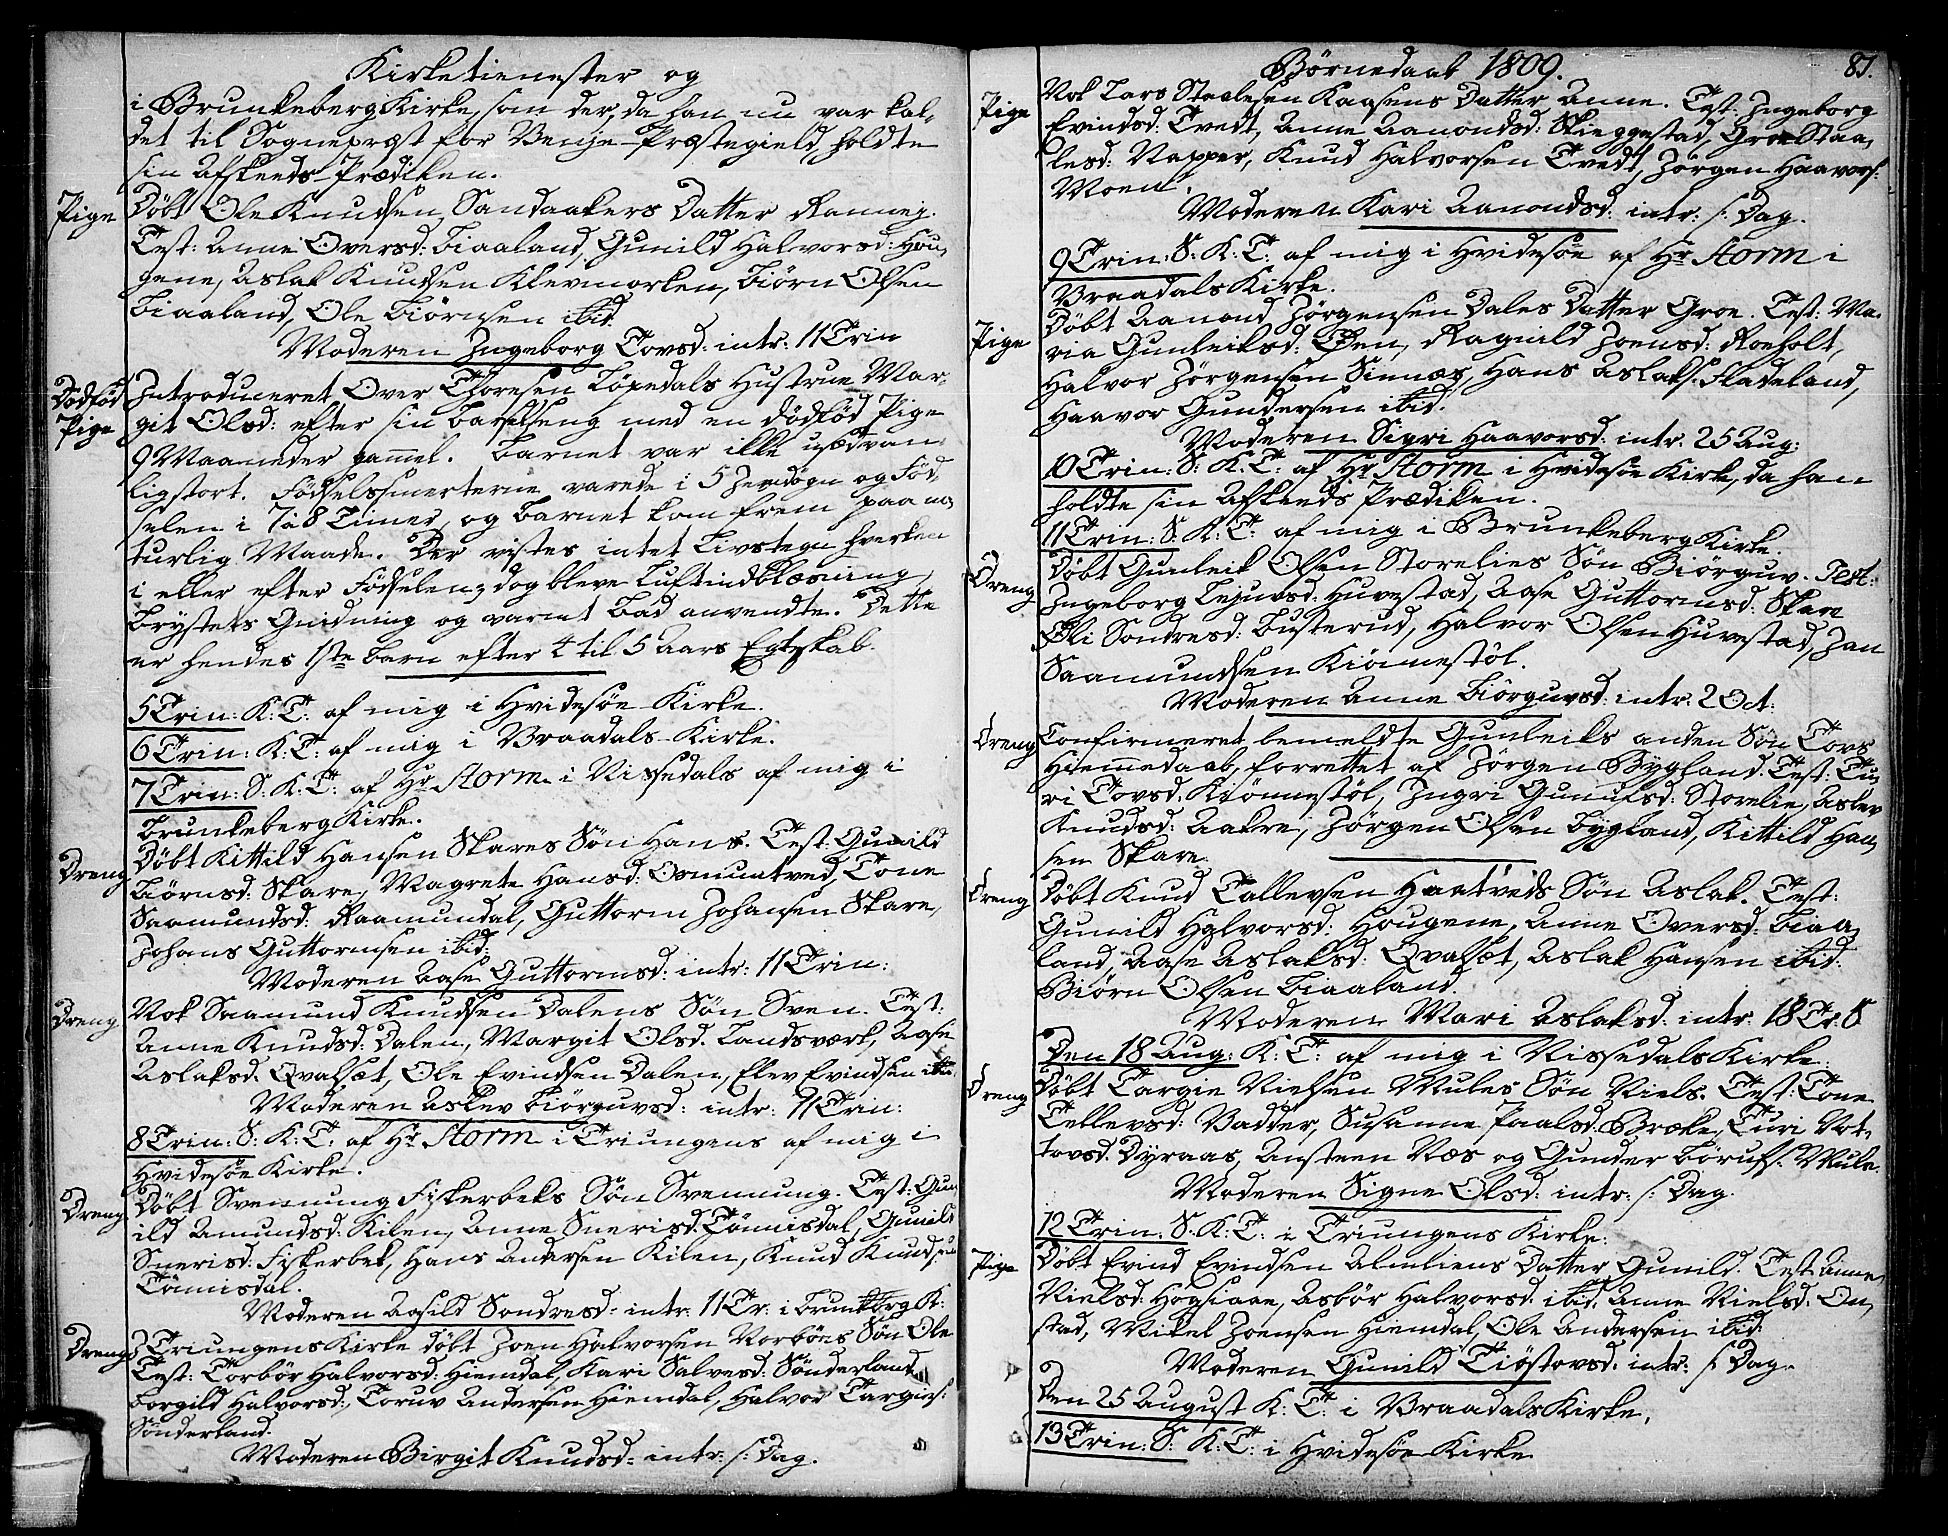 Kirketienester og
i Brunkeberg Kirke, som der, da han nu var kal,
det til Sognepræst for Venje-Præstegield, holdte
sin Afskeeds-Prædiken.
Pige
Døbt Ole Knudsen Sandaakers Datter Rannej.
Test: Anne Oversd: Liaaland, Gunild Halvorsd: Hou,
gene, Aslak Knudsen Klevmorken, Biørn Olsen
Liaaland, Ole Biørnsen ibid.
Moderen Ingeborg Tovsd: intr: 11 Trin
Dødfød
Pige
Introduceret Over Thoresen Løxedals Hustrue Mar,
git Olsd: efter sin Barselseng med en dødfød Pige
9 Maaneder gammel. Barnet var ikke usædvan,
lig stort. Fødselssmerterne varede i 5 Jemdøgn og Fød,
selen i 7 à 8 Timer, og Barnet kom frem paa na,
turlig Maade. Der vistes intet Livstegn hverken
i eller efter Fødselen; dog bleve Luftindblæsning,
Brystets Gnidning og varmt Bad anvendte. Dette
er hendes 1ste Barn efter 4 til 5 Aars Egteskab.
5 Trin: K: T: af mig i Hvidesøe Kirke.
6 Trin: K: T: af mig i Vraadals-Kirke.
7 Trin: S. K: T: af Hr Storm i Nissedals af mig i
Brunkeberg Kirke.
Dreng
Døbt Kittild Hansen Skares Søn Hans. Test: Gunild
Biørnsd: Skare, Magrete Hansd: Osmuntved, Tone
Saamundsd: Raamundal, Guttorm Johansen Skare,
Johans Guttormsen ibid:
Moderen Aase Guttormsd: intr: 11 Trin:
Dreng
Nok Saamund Knudsen Dalens Søn Sven. Test:
Anne Knudsd: Dalen, Margit Olsd. Landsværk, Aase
Aslaksd. Qvalsæt, Ole Evindsen Dalen, Elev Evindsen ibid.
Moderen Aslev Biørguvsd: intr: 11 Trin:
8 Trin: S: K: T: af Hr Storm i Triungens af mig i
Hvidesøe Kirke.
Dreng
Døbt Svennung Fiskerbeks Søn Svennung. Test: Gun,
ild Amundsd: Kilen, Anne Snerisd: Tønnisdal, Gunild
Snerisd: Fiskerbek, Hans Andersen Kilen, Knud Knudsen
Tønnisdal.
Moderen Aasild Sondresd: intr: 11 Tr: i Brunkbrg K:
Dreng
I Triungens Kirke døbt Joen Halvorsen Norbøes Søn Ole
Test: Torbør Halvorsd: Hiemdal, Kari Salvesd: Sønderland
Borgild Halvorsd:, Toruv Andersen Hiemdal, Halvor Targies:
Sønderland.
Moderen Birgit Knudsd: intr: s: Dag.
Børnedaab 1809.
81.
Pige
Nok Lars Staalesen Kaasens Datter Anne. Test: Ingeborg
Evindsd: Tvedt, Anne Aanondsd: Skeggestad, Groe Staa,
lesd: Napper, Knud Halvorsen Tvedt, Jørgen Haavors:
Moen.
Moderen Kari Aanondsd: intr: s: Dag.
9 Trin: S: K: T: af mig i Hvidesøe af Hr Storm i
Vraadals Kirke.
Pige
Døbt Aanond Jørgensen Dales Datter Groe. Test: Ma,
ria Gunleiksd: Øen, Ragnild Joensd: Roeholt,
Halvor Jørgensen Sinnæs, Hans Aslaks: Fladeland,
Haavor Gundersen ibid.
Moderen Sigri Haavorsd: intr. 25 Aug:
10 Trin: S: K: T: af Hr Storm i Hvidesøe Kirke, da han
holdte sin Afskeeds Prædiken.
11 Trin: S: K: T: af mig i Brunkeberg Kirke.
Dreng
Døbt Gunleik Olsen Storelies Søn Biørguv. Test:
Ingeborg Lejuvsd: Huvestad, Aase Guttormsd: Skare
Øli Sondresd: Busterud, Halvor Olsen Huvestad, Jan
Saamundsen Kiønnestøl.
Moderen Anne Biørguvsd: intr. 2 Oct:
Dreng
Confirmeret bemeldte Gunleiks anden Søn Tovs
Hiemmedaab, forrettet af Jørgen Bygland. Test: Tu,
ri Tovsd. Kiønnestøl, Ingri Gunulfsd: Storelie, Aslev
Knudsd: Aakre, Jørgen Olsen Bygland, Kittild Han,
sen Skare.
Dreng
Døbt Knud Tallevsen Haatveds Søn Aslak. Test:
Gunild Halvorsd: Hougene, Anne Oversd: Liaa,
land, Aase Aslaksd: Qvalsæt, Aslak Hansen ibid:
Biørn Olsen Liaaland.
Moderen Mari Aslaksd: intr. 18 Tr: S
Den 18 Aug: K: T: af mig i Nissedals Kirke.
Dreng
Døbt Targie Nielsen Mules Søn Niels. Test: Tone
Tellevsd: Vadder, Susanne Paalsd. Bræke, Turi Not,
tovsd. Dyraas, Ansteen Næs og Gunder Børufs: Mule.
Moderen Signe Olsd: intr: s: Dag.
12 Trin: S: K: T: i Triungens Kirke:
Pige
Døbt Evind Evindsen Almliens Datter Gunild. Test: Anne
Nielsd: Høgsiaae, Asbør Halvorsd. ibid. Anne Nielsd. On,
stad, Mikel Joensen Hiemdal, Ole Andersen ibid:
Moderen Gunild Tiøstovsd: intr: s: Dag.
Den 25 August K: T: i Vraadals Kirke.
13 Trin: S: K: T: i Hvidesøe Kirke